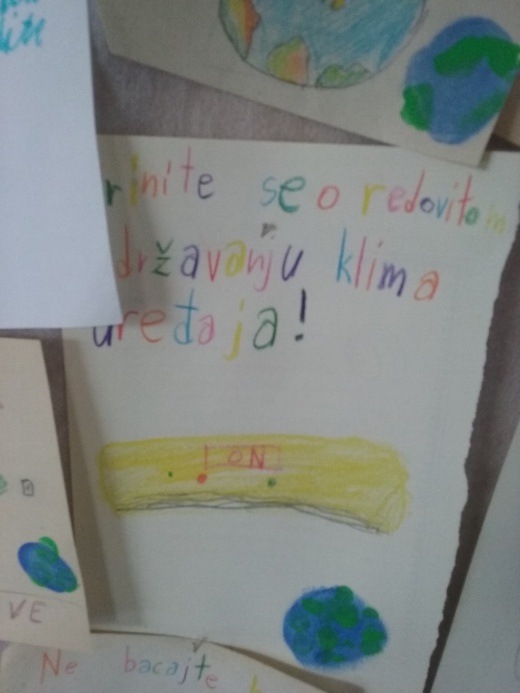 rinite se o redovitom
državanju klima
uređaja!
ON
VE
Ne bacajte